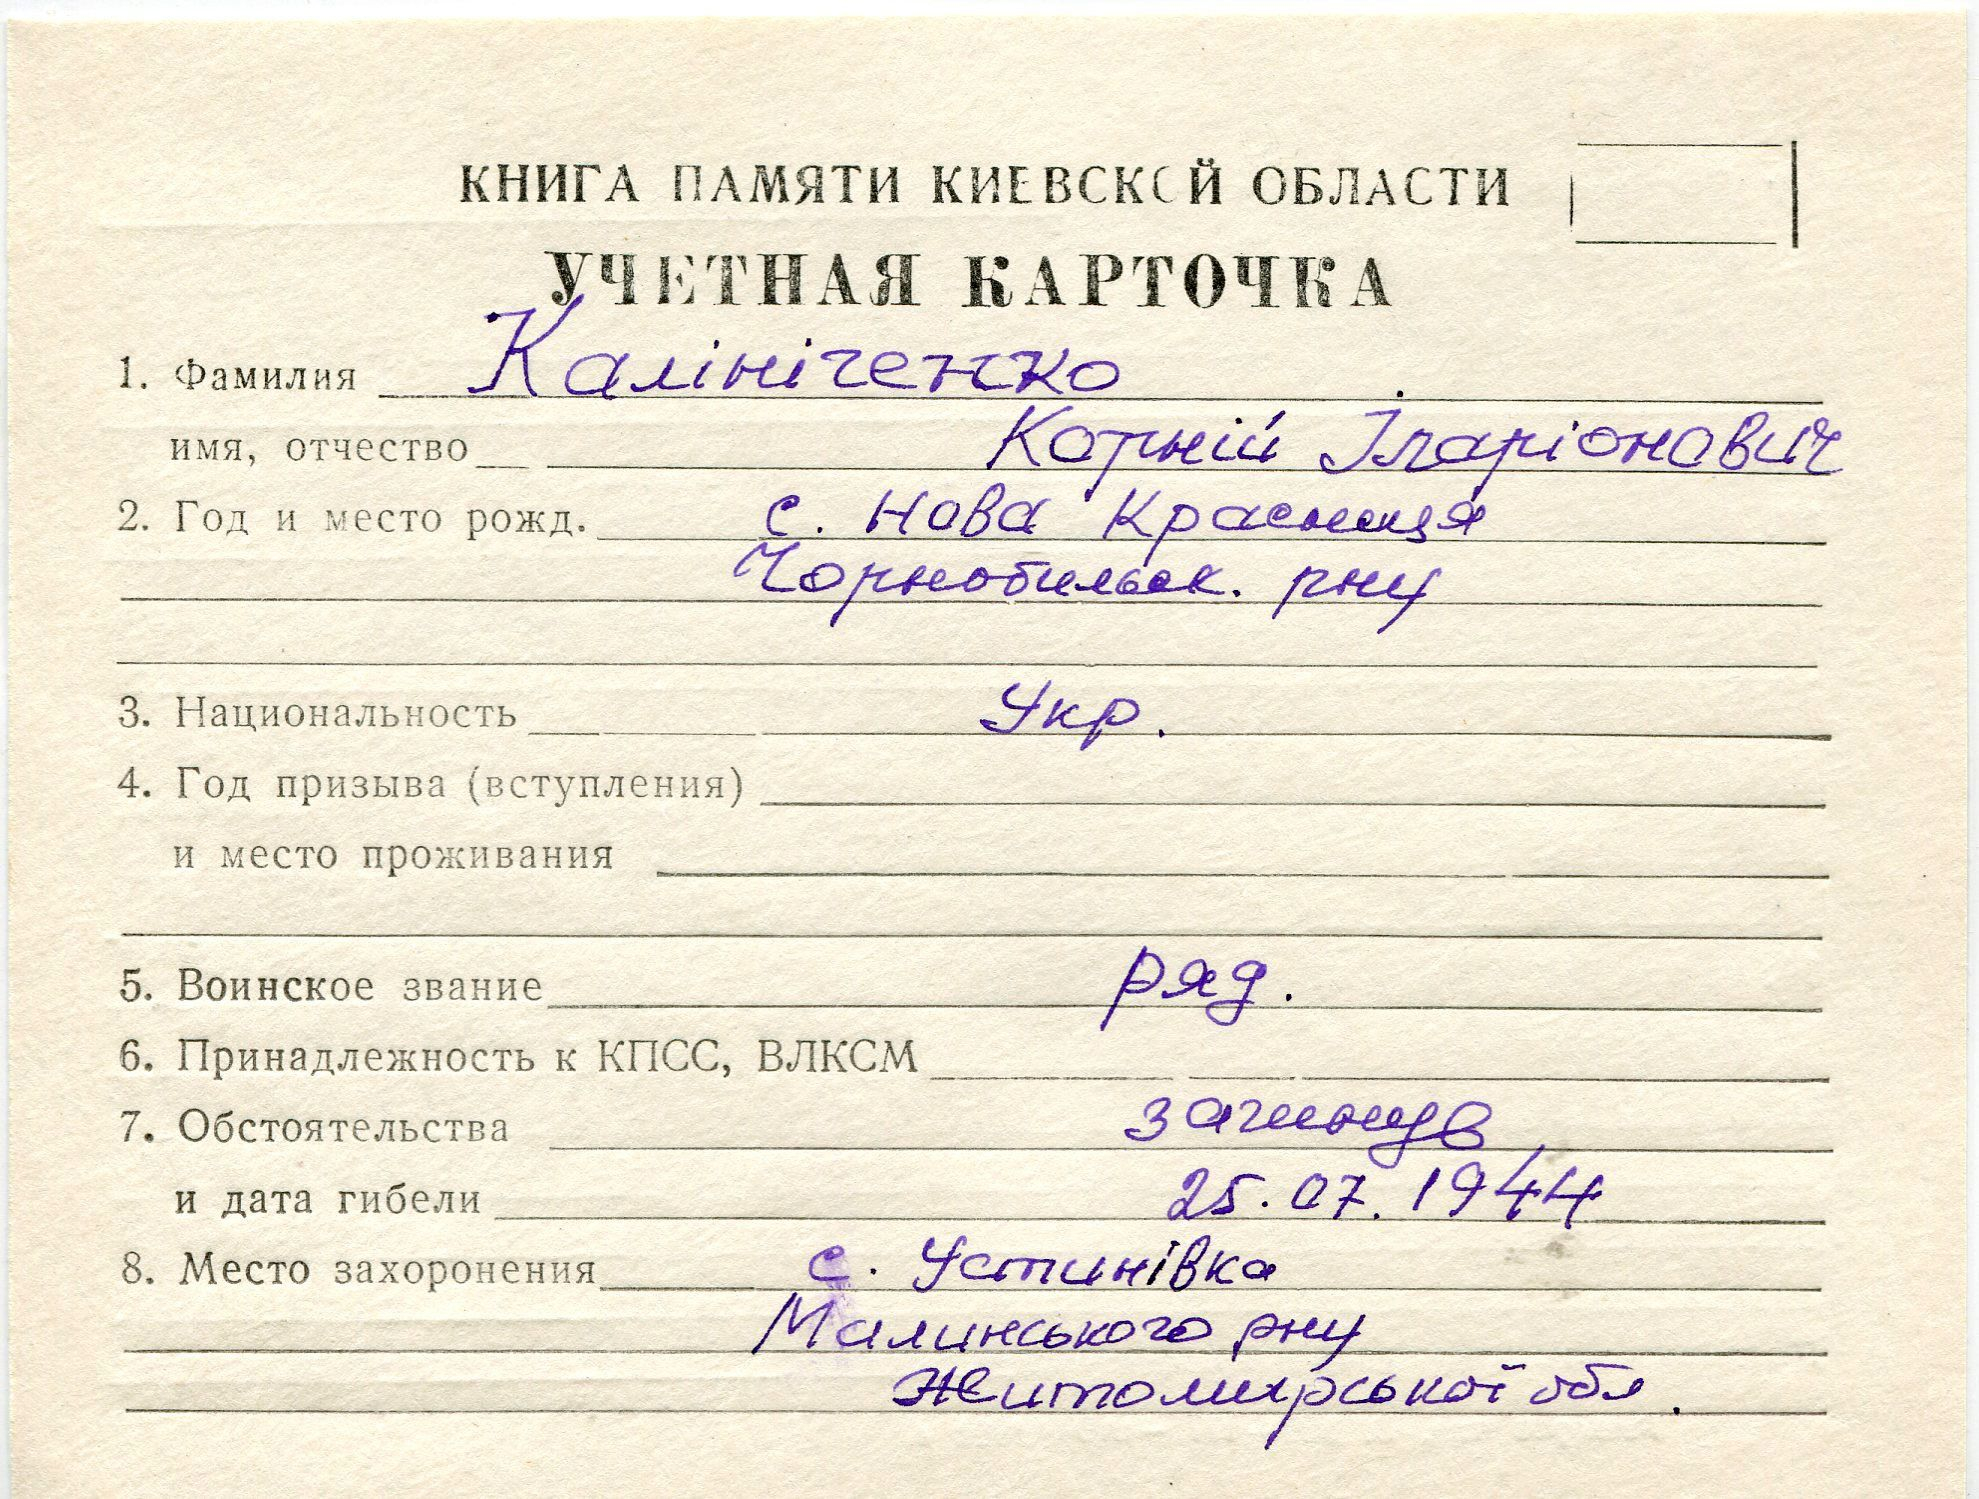 КНИГА ПАМЯТИ КИЕВСКОЙ ОБЛАСТИ
УЧЕТНАЯ КАРТОЧКА
1. Фамилия Калініченко
имя, отчество Корній Іларіонович
2. Год и место рожд. с. Нова Красниця
Чорнобильск. рну
3. Национальность Укр.
4. Год призыва (вступления)
и место проживания
5. Воинское звание ряд.
6. Принадлежность к КПСС, ВЛКСМ
7. Обстоятельства загинув
и дата гибели 25.07.1944
8. Место захоронения с. Устинівка
Малинського рну
Житомирської обл.